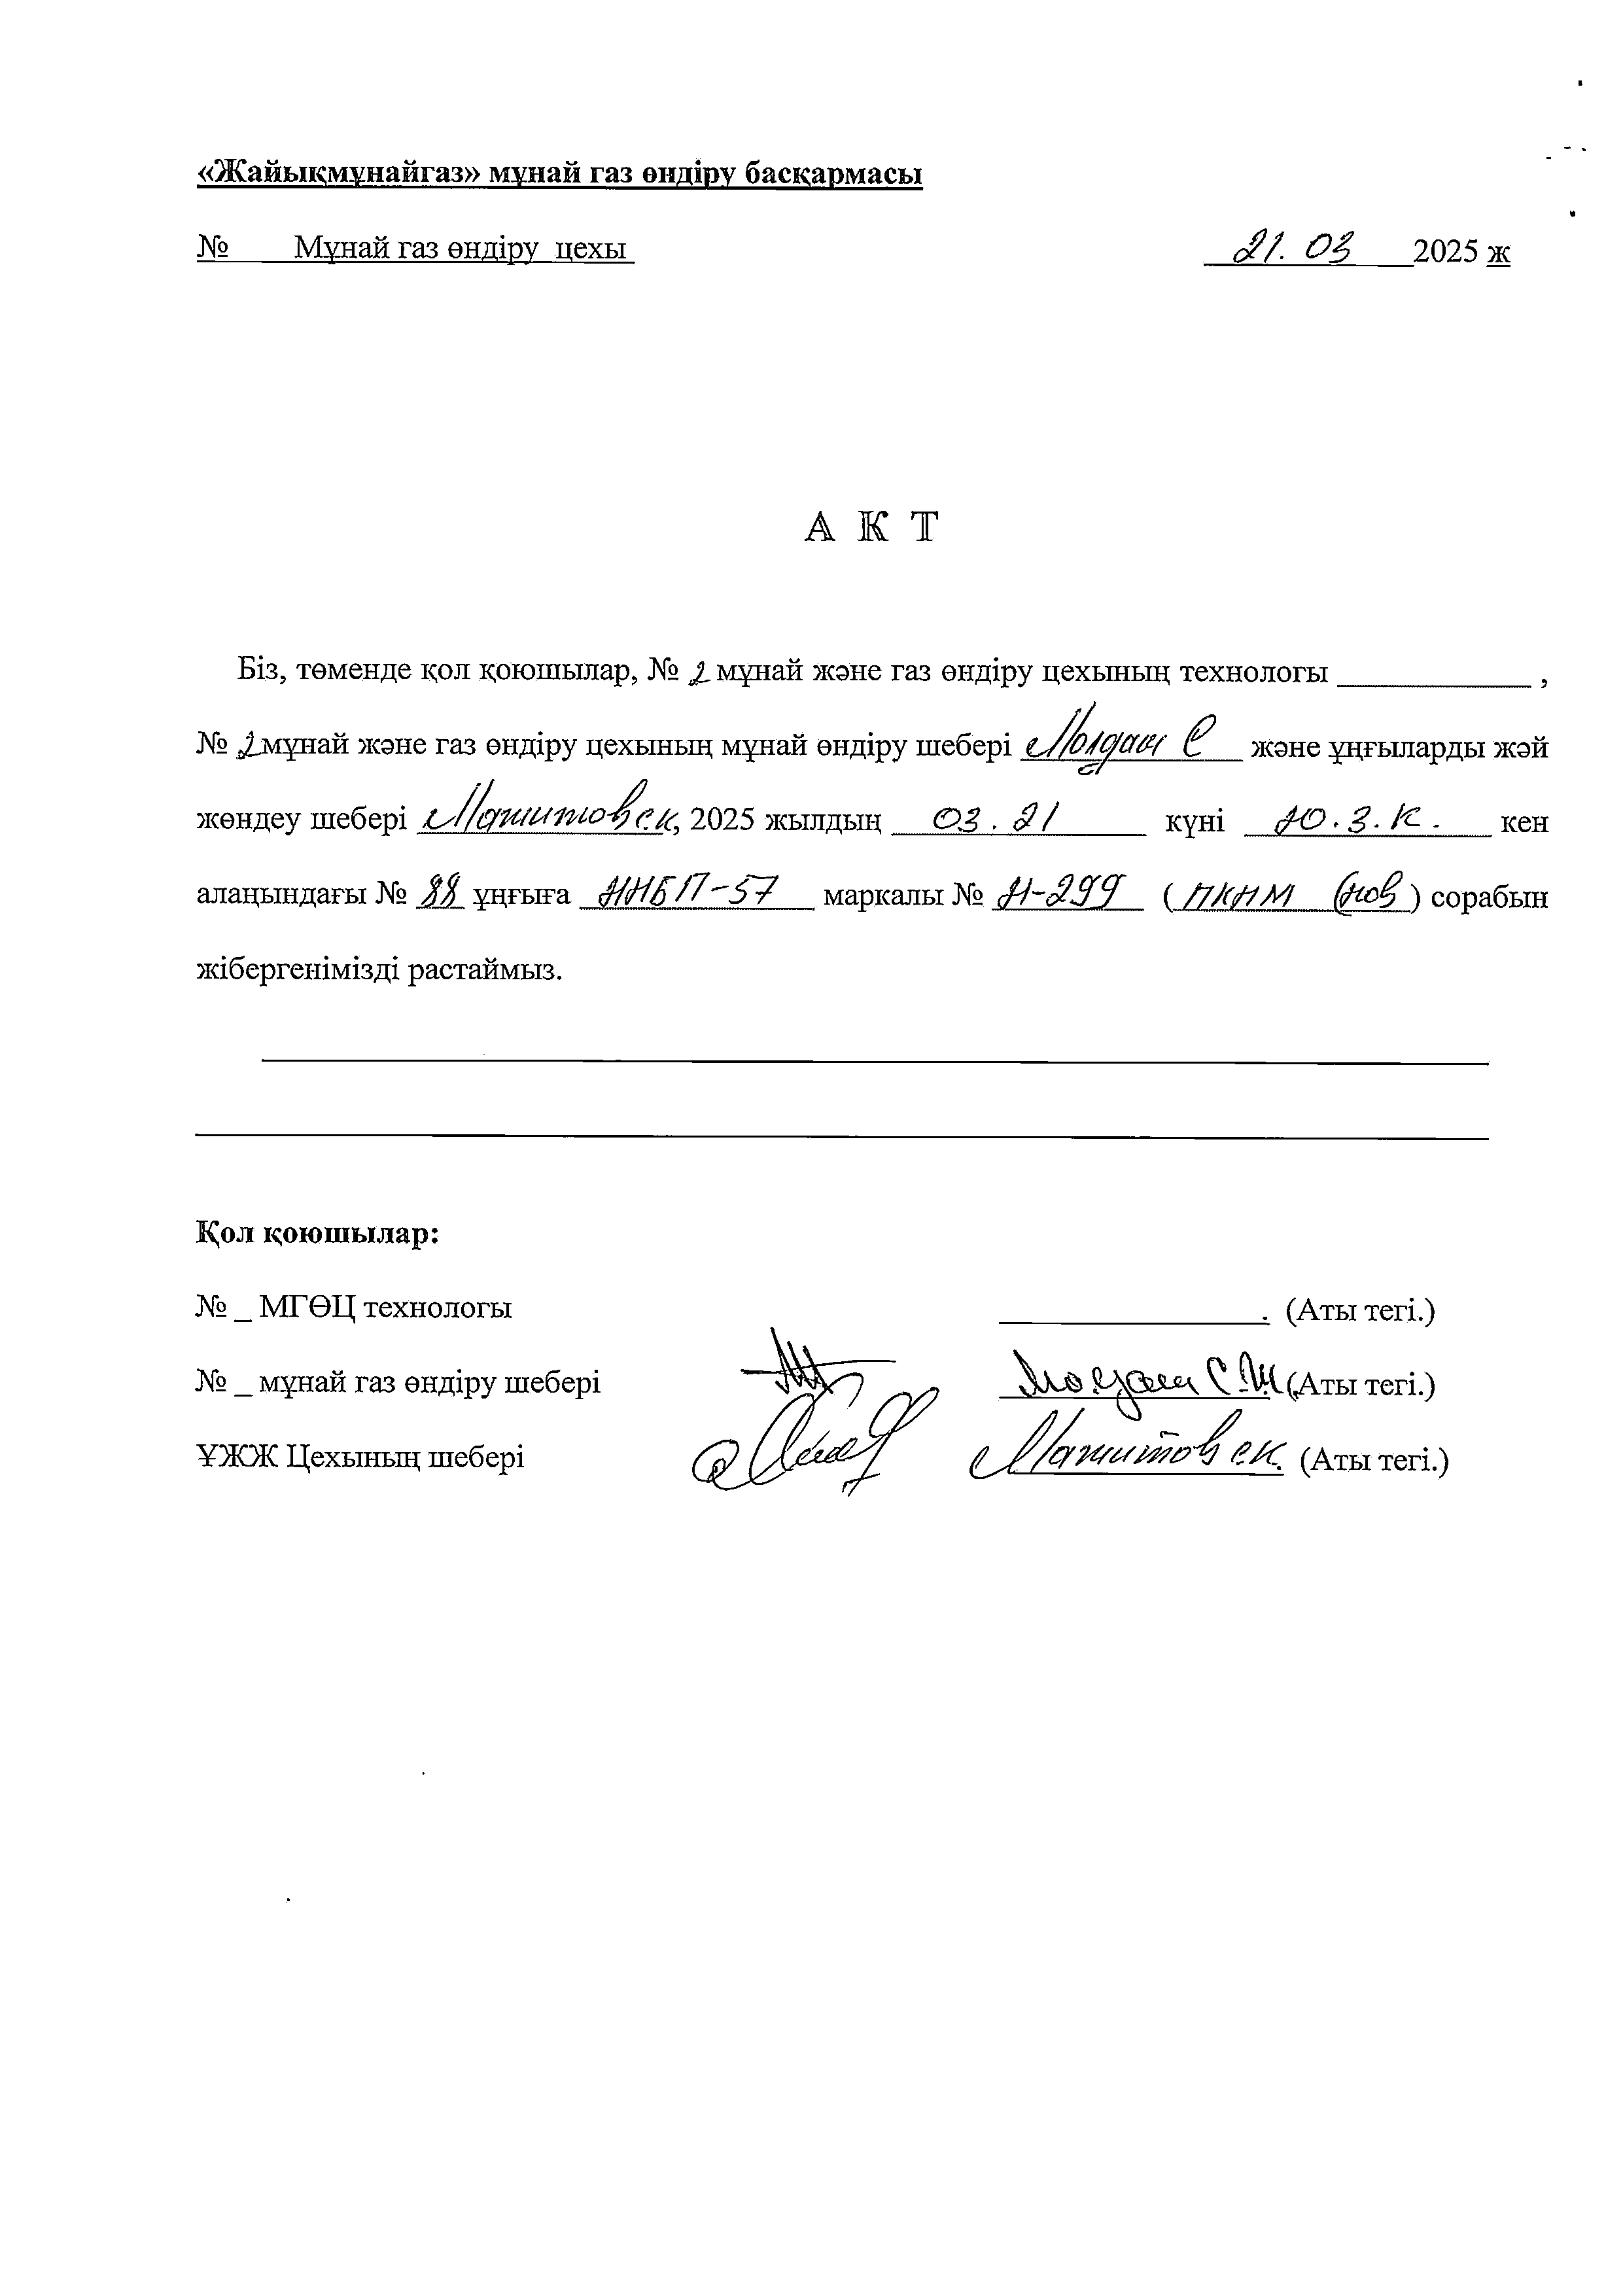 «Жайықмұнайгаз» мұнай газ өндіру басқармасы
№ Мұнай газ өндіру цехы 21. 03 2025 ж
А К Т
Біз, төменде қол қоюшылар, № 2 мұнай және газ өндіру цехының технологы ____________ ,
№ 2 мұнай және газ өндіру цехының мұнай өндіру шебері Молдаш С және ұңғыларды жәй
жөндеу шебері 2025 жылдың 03.21 күні Ю.З.К. кен
алаңындағы № 88 ұңғыға ННБП-57 маркалы № Н-299 (ПКНМ (нов) сорабын
жібергенімізді растаймыз.
Қол қоюшылар:
№ _ МГӨЦ технологы . (Аты тегі.)
№ _ мұнай газ өндіру шебері Молдаш С.Ш. (Аты тегі.)
ҰЖЖ Цехының шебері (Аты тегі.)